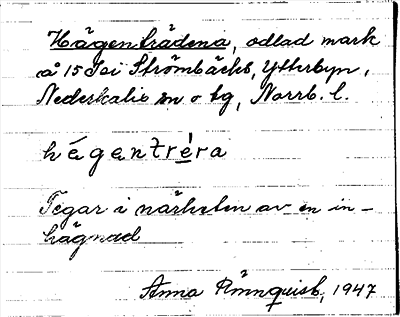 Hägenträdena, odlad mark
å 15 Sei Strömbäcks, Ytterbyn,
Nederkalix sn o tg, Norrb. l.
hégentréra
Tegar i närheten av en in-
hägnad
Anna Rönnquist, 1947